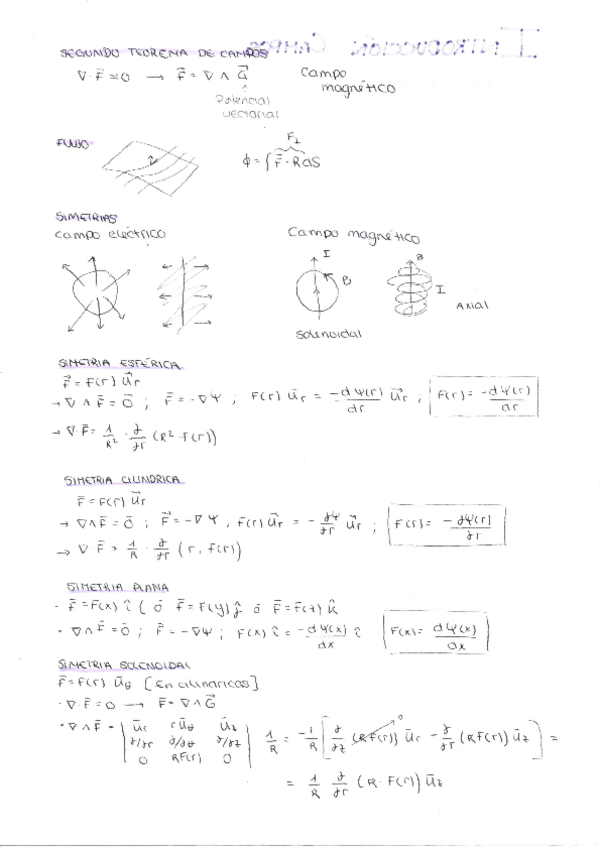 SEGUNDO TEOREMA DE CAMPOS
∇·F̄=0 → F̄=∇∧G⃗ Campo magnético
↑
Potencial
vectorial
FLUJO
F⊥
ϕ=∫F̄·R̄dS
SIMETRIAS
Campo eléctrico Campo magnético
I B
B I
Axial
Solenoidal
SIMETRIA ESFÉRICA
F⃗=F(r) U⃗r
→ ∇∧F̄=0̄ ; F̄=-∇Ψ ; F(r) Ūr = -dΨ(r)/dr U⃗r ; F(r)= -dΨ(r)/dr
→ ∇·F̄= 1/R² · ∂/∂r (R²·F(r))
SIMETRIA CILINDRICA
F̄=F(r) U⃗r
→ ∇∧F̄=0̄ ; F⃗=-∇Ψ , F(r)U⃗r = -∂Ψ/∂r U⃗r ; F(r)= -∂Ψ(r)/∂r
→ ∇·F̄= 1/R · ∂/∂r (r, f(r))
SIMETRIA PLANA
· F̄=F(x) î ( ó F̄=F(y) ĵ ó F̄=F(z) k̂
· ∇∧F̄=0̄ ; F̄=-∇Ψ ; F(x) î = -dΨ(x)/dx î F(x)= dΨ(x)/dx
SIMETRIA SOLENOIDAL
F̄=F(r) Ūθ [En cilindricas]
· ∇·F̄=0 → F̄=∇∧G⃗
· ∇∧F̄ = | Ūr rŪθ Ūz | 1/R = -1/R [ ∂/∂z (RF(r)) Ūr - ∂/∂r (RF(r)) Ūz ] =
| ∂/∂r ∂/∂θ ∂/∂z |
| 0 RF(r) 0 |
= 1/R ∂/∂r (R·F(r)) Ūz